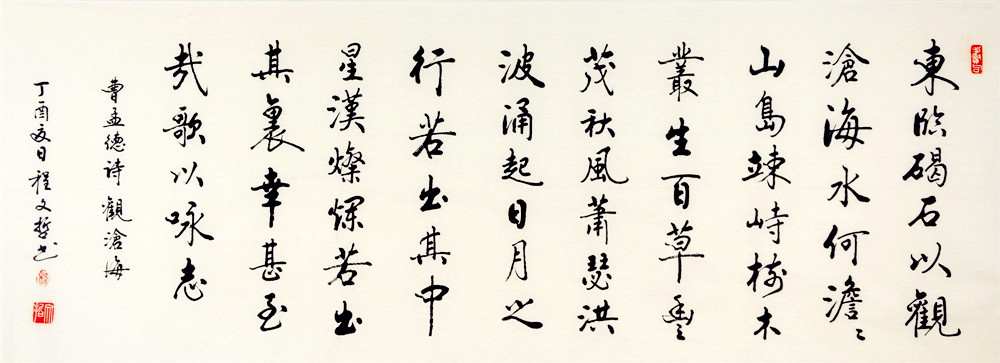 東臨碣石以觀
滄海水何澹〻
山島竦峙樹木
叢生百草豐
茂秋風蕭瑟洪
波涌起日月之
行若出其中
星漢燦爛若出
其裏幸甚至
哉歌以咏志
曹孟德诗觀滄海
丁酉夏日程文哲书